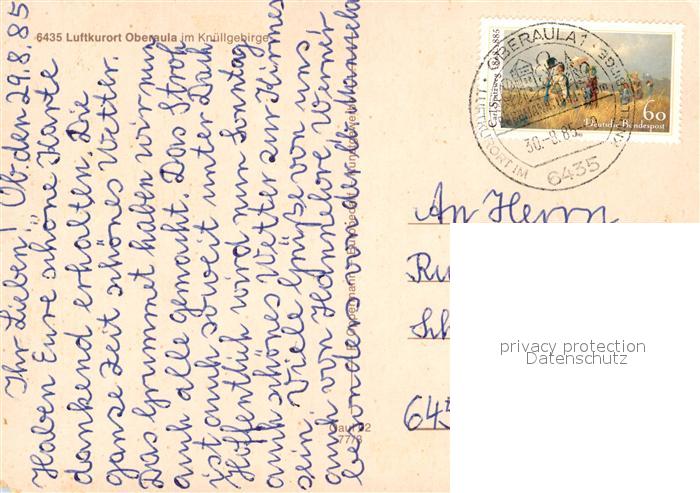 6435 Luftkurort Oberaula im Knüllgebirge
Ihr Lieben! Ob. den 29.8.85
Haben Eure schöne Karte
dankend erhalten. Die
ganze Zeit schönes Wetter.
Das Grummet haben wir nun
auch alle gemacht. Das Stroh
ist auch soweit unter Dach.
Hoffentlich wird nun Sonntag
auch schönes Wetter zur Kirmes
sein. Viele Grüße von uns
auch von Hannelore, Werner
besonders von der kl. Manuela
Carl Spitzweg 1808-1885
60
Deutsche Bundespost
OBERAULA 1
LUFTKURORT IM
30.-8.85
6435
An Herrn
Ru
Sch
645
privacy protection
Datenschutz
77/8